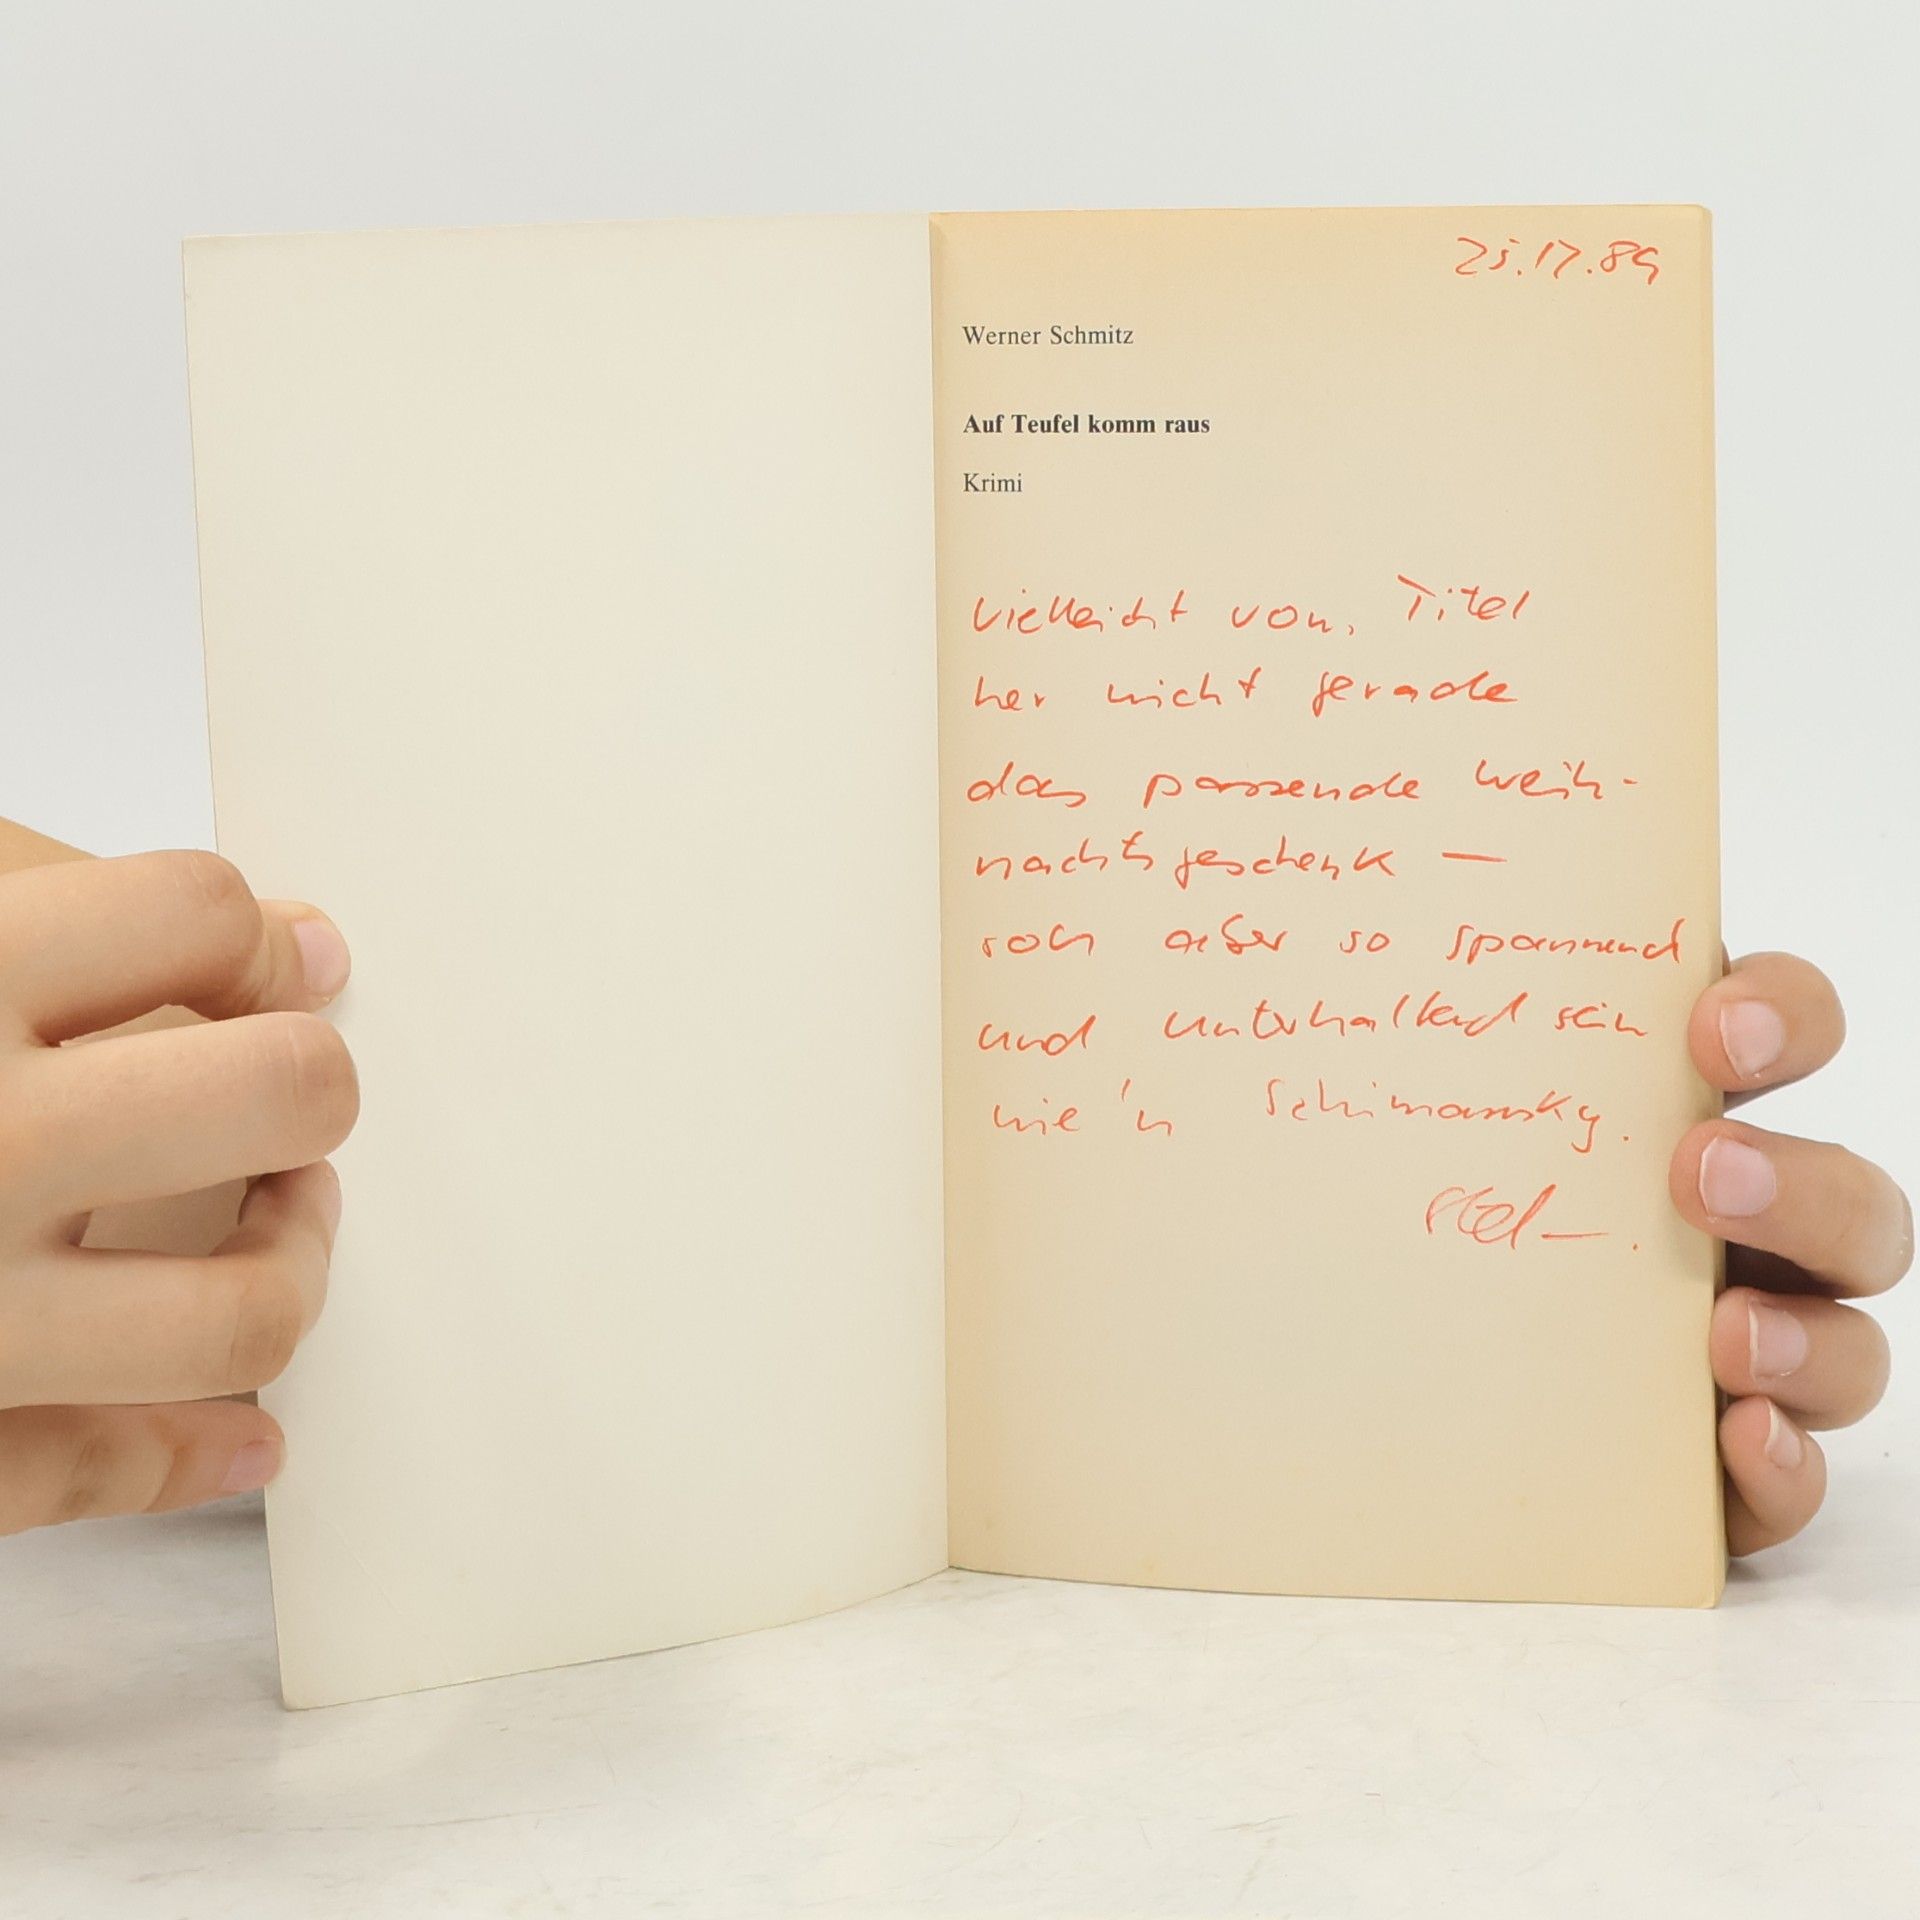 25.12.89
Werner Schmitz
Auf Teufel komm raus
Krimi
Vielleicht vom Titel
her nicht gerade
das passende Weih-
nachtsgeschenk —
soll aber so spannend
und unterhaltend sein
wie 'n Schimansky.